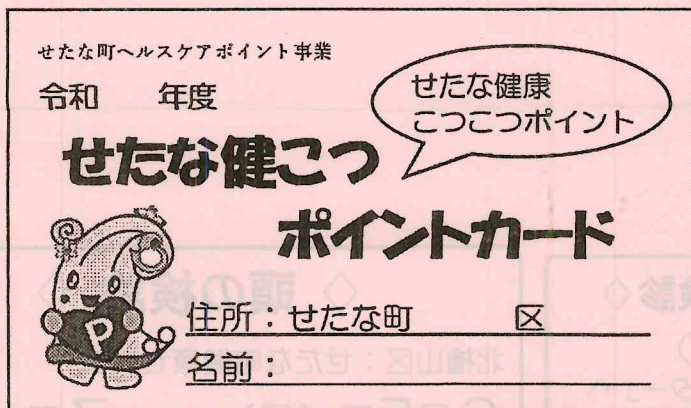 せたな町ヘルスケアポイント事業
令和　　年度
せたな健康
こつこつポイント
せたな健こつ
ポイントカード
P
住所：せたな町　　　　区
名前：